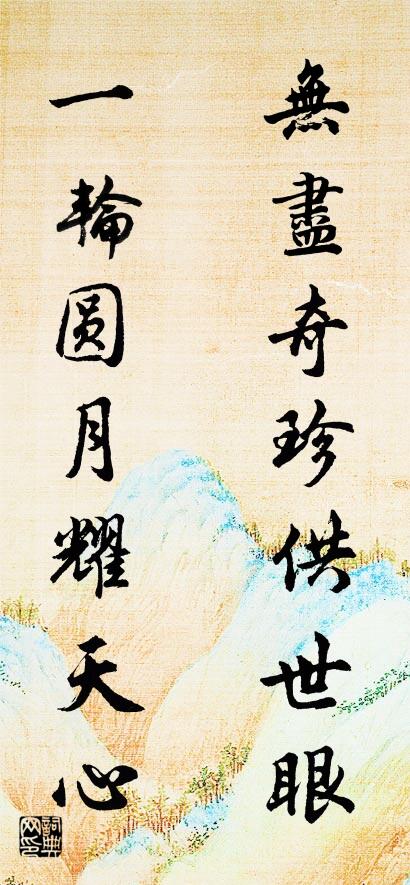 無盡奇珍供世眼
一輪圆月耀天心
詞典网印